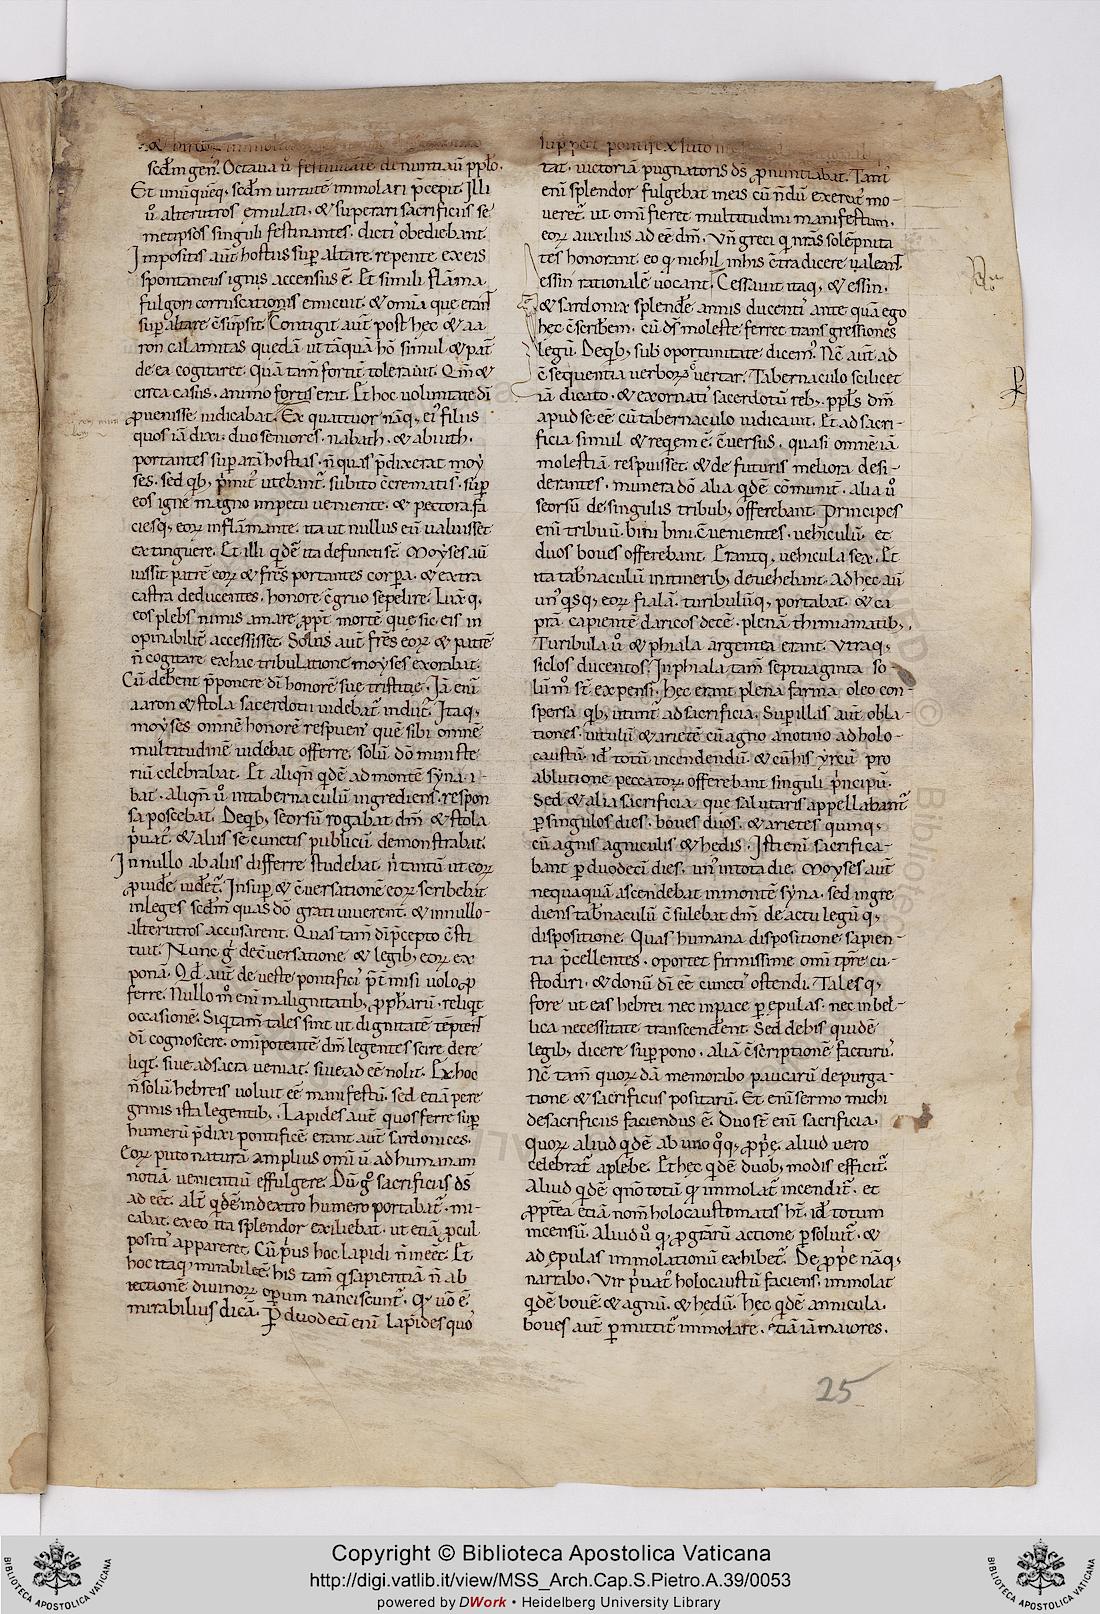 sedm gen̄. Octaua ū festiuitate denuntiaū ppło.
Et unū quēq, sedm uirtutē immolari p̄cepit. Illi
ū alterutros emulati. & superari sacrificiis se
metipsos singuli festinantes. dictī obediebant.
Impositis aut̄ hostiis sup̄ altare. repente exeis
spontaneus ignis accensus ē. Et simili flāma
fulgori corruscationis emicuit. & om̄ia que erant̄
sup̄ altare c̄sūpsit. Contigit aut̄ post hec & aa
ron calamitas quedā ut tāquā hō simul & pat̄
de ea cogitaret. Quā tam̄ fortit̄ tolerauit. Qm̄ &
circa casus. animo fortis erat. Et hoc uoluntate dī
puenisse iudicabat. Ex quattuor nāq, ei' filiis
quos iā dixi. duo seniores. nabath. & abiuth.
portantes sup̄ arā hostias. n̄ quas p̄dixerat moy
ses. sed qb, p̄mit' utebant̄. subito c̄cremati s̄. sup̄
eos igne magno impetu ueniente. & pectora fa
ciesq, eoꝝ inflāmante. ita ut nullus eū ualuisset
extinguere. Et illi qdē ita defuncti st̄. Moyses aū
iussit patrē eoꝝ & fr̄es portantes corpora. & extra
castra deducentes. honore c̄gruo sepelire. Luxq,
eos plebs nimis amare. ppt̄ morte que sic eis in
opinabilit̄ accessisset. Solus aut̄ fr̄es eoꝝ & patrē
n̄ cogitare exhac tribulatione moyses exorabat.
Cū deberent p̄ponere dī honorē sue tristitie. Iā enī
aaron & stola sacerdotii uidebat̄ indut'. Itaq,
moyses omnē honorē respuens quē sibi omnē
multitudinē uidebat offerre. solū dō ministe
riū celebrabat. Et aliqn̄ qdē ad montē syna i-
bat. aliqn̄ ū intabernaculū ingrediens. respon
sa poscebat. Deqb, seorsū rogabat dm̄. & stola
p̄uat'. & aliis se cunctis publicū demonstrabat.
In nullo ab aliis differre studebat. n̄ tantū ut eoꝝ
puidē uidet̄. Insup̄ & c̄uersationē eoꝝ scribebat
inleges sedm̄ quas dō grati uiuerent. & innullo-
alterutros accusarent. Quas tam̄ dī p̄cepto c̄sti
tuit. Nunc ḡ dec̄uersatione & legib, eoꝝ ex
ponā. Qd̄ aut̄ de ueste pontifici' p̄t̄misi uolo p
ferre. Nullo m̄ enī malignitatib, pphārū. reliqt
occasionē. Siq tam̄ tales sint ut dignitatē tēptent̄
dī cognoscere. omīpotentē dm̄ legentes scire dere
liqt. siue adsacra ueniat. siue ad eē nolit. Ex hoc
n̄ solū hebreis uoluit eē manifestū. sed etiā pere
grinis ista legentib,. Lapides aut̄ quos ferre sup̄
humerū p̄dixi pontificē. erant aut̄ sardonices.
Eoꝝ puto naturā amplius omī ū. ad humanam
notiā uenientiū effulgere. Dū gº sacrificiis ds̄
ad eēt. alt̄ qdē indextro humero portabat̄. mi-
cabat. exeo ita splendor exiliebat. ut etiā pcul
positī appareret. Cū p̄us hoc lapidi n̄ ineēt. Et
hoc itaq, mirabile ē. his tam̄ q sapientiā n̄ ab
iectionē diuinoꝝ operum nanciscunt̄. Qi uō ē.
mirabilius dicā. P duodecī enī lapides quos
tat. uictoriā pugnatoris ds̄ pnuntiabat. Tant'
enī splendor fulgebat meis cū n̄dū exercit' mo-
ueret̄. ut omī fieret multitudini manifestum.
eoꝝ auxiliis ad eē dm̄. Vn̄ greci q nr̄as solēpnita
tes honorant. eo qº nichil inhis c̄tradicere ualeant̄.
essin rationalē uocant. Cessauit itaq, & essin.
& sardonix splendē annis ducenti' ante quā ego
hec c̄scriberem. cū ds̄ moleste ferret transgressiones
legū. Deqb, sub oportunitate dicem'. Nc̄ aut̄ ad
c̄sequentia uerboꝝ uertar. Tabernaculo scilicet
iā dicato. & exornati' sacerdotū reb,. ppl's dm̄
apud se eē cū tabernaculo iudicauit. Et ad sacri-
ficia simul & reqem ē c̄uersus. quasi omnē iā
molestiā respuisset & de futuris meliora. desi-
derantes. munera dō alia qdē cōmunit̄. alia ū
seorsū de singulis tribub, offerebant. Principes
enī tribuū. bini bini c̄uenientes. uehiculū. et
duos boues offerebant. Erantq, uehicula sex. Et
ita tab̄naculū initinerib, deuehebant. Ad hec aū
un' qsq, eoꝝ fialā. turibulūq, portabat. & ca
prā. capientē daricos decē. plenā thimiamatib,.
Turibula ū & phiala argentea erant. Vtraq,
siclos ducentos. In phiala tam̄ septuaginta so-
lūm̄ st̄ expensi. Hec erant plena farina oleo con-
spersa qb, utunt̄ ad sacrificia. Sup̄ illas aut̄ obla-
tiones. uitulū & arietē cū agno anotino ad holo-
caustū. id' totū incendendū. & cū his yrcū pro
ablutione peccatoꝝ. offerebant singuli p̄ncipū.
Sed & alia sacrificia. que salutaris appellabant̄
p singulos dies. boues duos. & arietes quinq,
cū agnis agniculis & hedis. Isti enī sacrifica-
bant p duodecī dies. un' intota die. Moyses aut̄
nequaquā ascendebat inmontē syna. sed ingre
diens tab̄naculū c̄sulebat dm̄. de actu legū q,
dispositione. Quas humana dispositione sapien-
tia p̄cellentes. oportet firmissime omī tp̄re cu-
stodiri. & donū dī eē cuncti' ostendi. Tales q,
fore ut eas hebrei nec inpace p epulas. nec inbel-
lica necessitate transcendent. Sed dehis quidē
legib, dicere sup̄pono. aliā c̄scriptionē facturus.
Nc̄ tam̄ quoꝝdā memorabo paucarū depurga-
tione & sacrificiis positarū. Et enī sermo michi
desacrificiis faciendus ē. Duo st̄ enī sacrificia.
Quoꝝ aliud qdē ab uno qºq, pprie. aliud uero
celebrat̄ aplebe. Et hec qdē duob, modis efficit̄.
Aliud qdē qnō totū qº immolat̄ incendit̄. et
pptea etiā nom̄ holocaustomatis ht̄. id' totum
incensū. Aliud ū q, p gt̄iarū actione psoluit̄. &
ad epulas immolationū exhibet̄. De pprie nāq,
narrabo. Vir p̄uat' holocaustū faciens. immolat
qdē bouē. & agnū. & hedū. hec qdē annicula.
boues aut̄ pmittit̄ immolare. etiā iā maiores.
25
Copyright © Biblioteca Apostolica Vaticana
http://digi.vatlib.it/view/MSS_Arch.Cap.S.Pietro.A.39/0053
powered by DWork • Heidelberg University Library
BIBLIOTECA APOSTOLICA VATICANA
BIBLIOTECA APOSTOLICA VATICANA